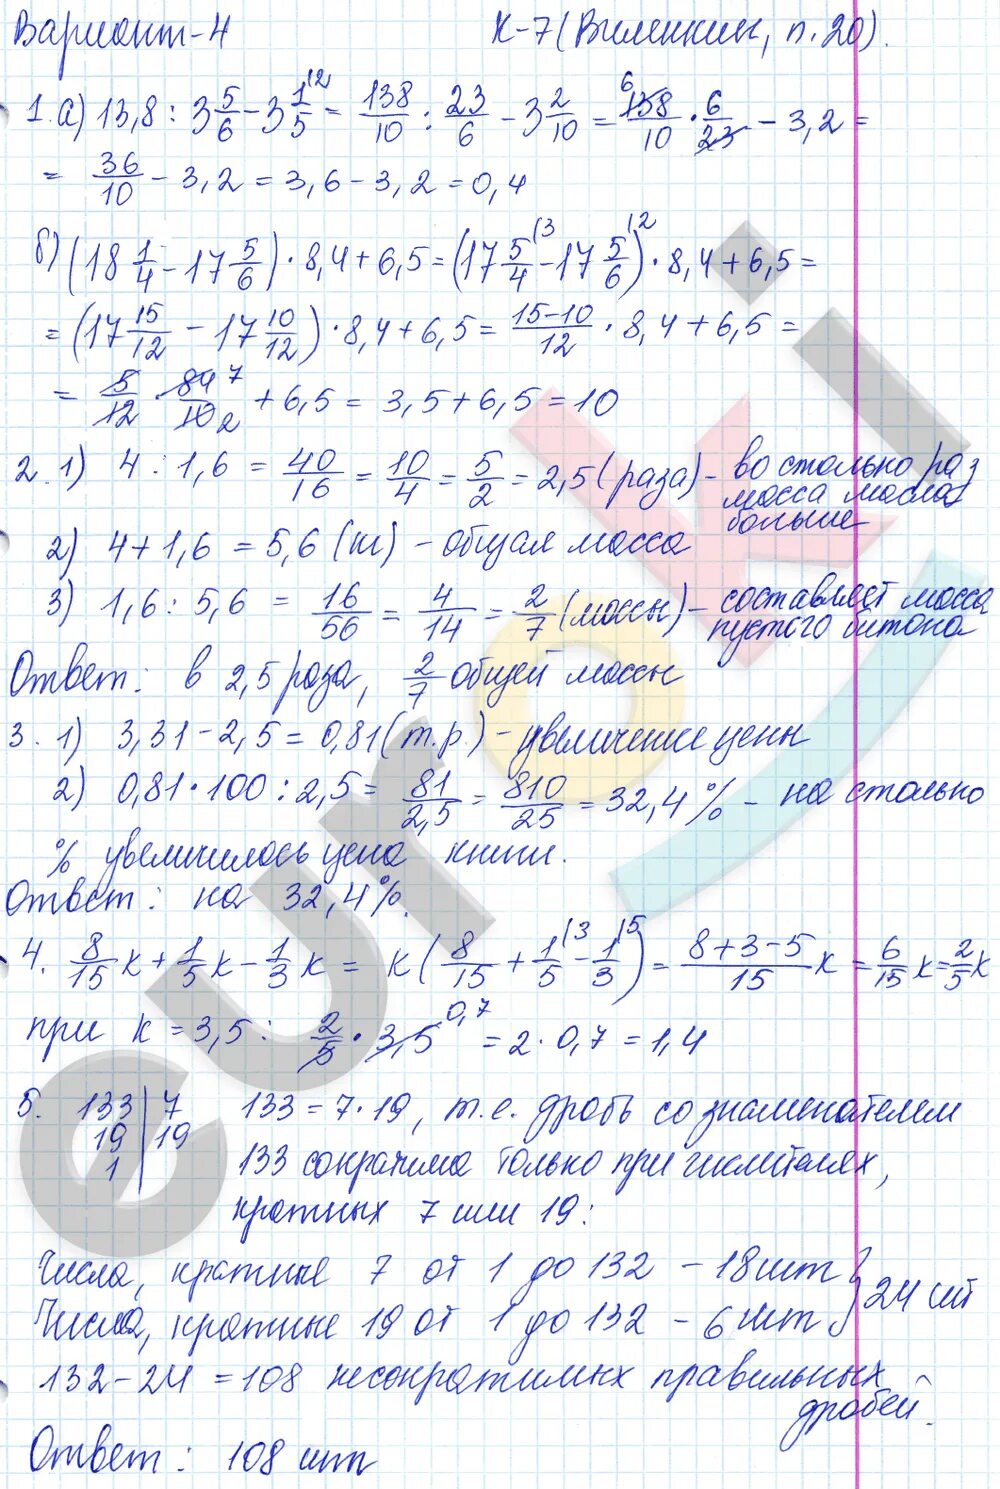 Вариант-4 К-7 (Виленкин, п.20).
1. а) 13,8 : 3 5/6 - 3 1/5 (2 = 138/10 : 23/6 - 3 2/10 = 6 138/10 · 6/23 - 3,2 =
= 36/10 - 3,2 = 3,6 - 3,2 = 0,4
б) (18 1/4 - 17 5/6) · 8,4 + 6,5 = (17 5/4 (3 - 17 5/6 (2) · 8,4 + 6,5 =
= (17 15/12 - 17 10/12) · 8,4 + 6,5 = 15-10/12 · 8,4 + 6,5 =
= 5/12 · 84 7/10 2 + 6,5 = 3,5 + 6,5 = 10
2. 1) 4 : 1,6 = 40/16 = 10/4 = 5/2 = 2,5 (раза) - во столько раз
масса масла
больше
2) 4 + 1,6 = 5,6 (кг) - общая масса
3) 1,6 : 5,6 = 16/56 = 4/14 = 2/7 (массы) - составляет масса
пустого битона
Ответ: в 2,5 раза, 2/7 общей массы
3. 1) 3,31 - 2,5 = 0,81 (т.р.) - увеличение цены
2) 0,81 · 100 : 2,5 = 81/2,5 = 810/25 = 32,4 % - на столько
% увеличилось цена книги.
Ответ: на 32,4%.
4. 8/15 к + 1/5 к - 1/3 к = к (8/15 + 1/5 (3 - 1/3 (5) = 8+3-5/15 к = 6/15 к = 2/5 к
при к = 3,5 : 2/5 · 3,5 0,7 = 2 · 0,7 = 1,4
5. 133 | 7 133 = 7 · 19, т.е. дробь со знаменателем
19 | 19
1 | 133 сократима только при числителях,
кратных 7 или 19:
Числа, кратные 7 от 1 до 132 - 18 шт
} 24 шт
Числа, кратные 19 от 1 до 132 - 6 шт
132 - 24 = 108 несократимых правильных
дробей.
Ответ: 108 шт
euroki